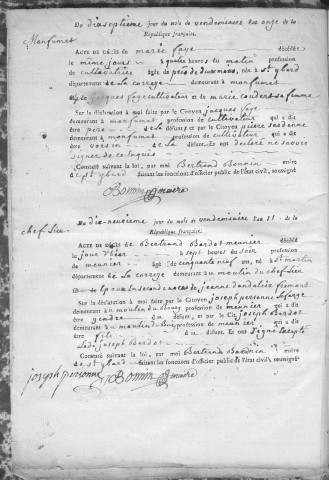 Du dixseptième jour du mois de vendemiaire l'an onze de la
République française.
Monfumet
ACTE DE DÉCÈS de marie faye décédée
le même jour à quatre heures du matin profession
de cultivatrice âgé de près de deux mois, né à St ybard
département de la Correze demeurant à monfumet
fille de jacques faye cultivateur et de marie coudert sa femme
Sur la déclaration à moi faite par le Citoyen jacques faye
demeurant à monfumet profession de cultivateur qui a dit
être pere de la défunt, et par le Citoyen
demeurant à monfumet profession de cultivateur qui a dit
être voisin de la défunt. et ont déclaré ne savoir
signer de ce enquis
Constaté suivant la loi, par moi Bertrand Bonnin maire
de St ybard faisant les fonctions d'officier public de l'état civil, soussigné
Bonnin maire
Du dix-neuvieme jour du mois de vendemiaire l'an 11 de la
République française.
chef Lieu
ACTE DE DÉCÈS de Bertrand Bordot meunier décédé
le jour d'hier à sept heures du soir profession
de meunier âgé de cinquante neuf ans, né à St martin
département de la Correze demeurant au moulin du chef lieu
Sur la déclaration à moi faite par le Citoyen joseph personne
demeurant au moulin du Bourg profession de meunier qui a dit
être gendre du défunt, et par le Cit. joseph Bordot
demeurant au moulin du Bourg profession de meunier qui a dit
être fils du défunt. Et ont signé excepté
Led. joseph Bordot
Constaté suivant la loi, par moi Bertrand Bonnin maire
de St ybard faisant les fonctions d'officier public de l'état civil, soussigné
joseph personne Bonnin maire